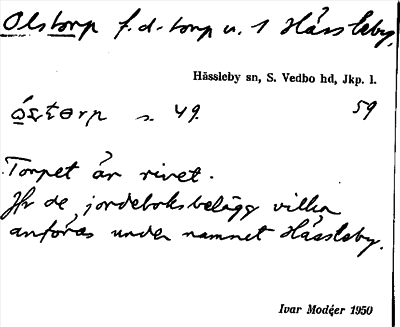 Olstorp f.d. torp u. 1 Hässleby.
Hässleby sn, S. Vedbo hd, Jkp. l.
s. 49. 59
Torpet är rivet.
Jfr de jordeboksbelägg vilka
anföras under namnet Hässleby.
Ivar Modéer 1950